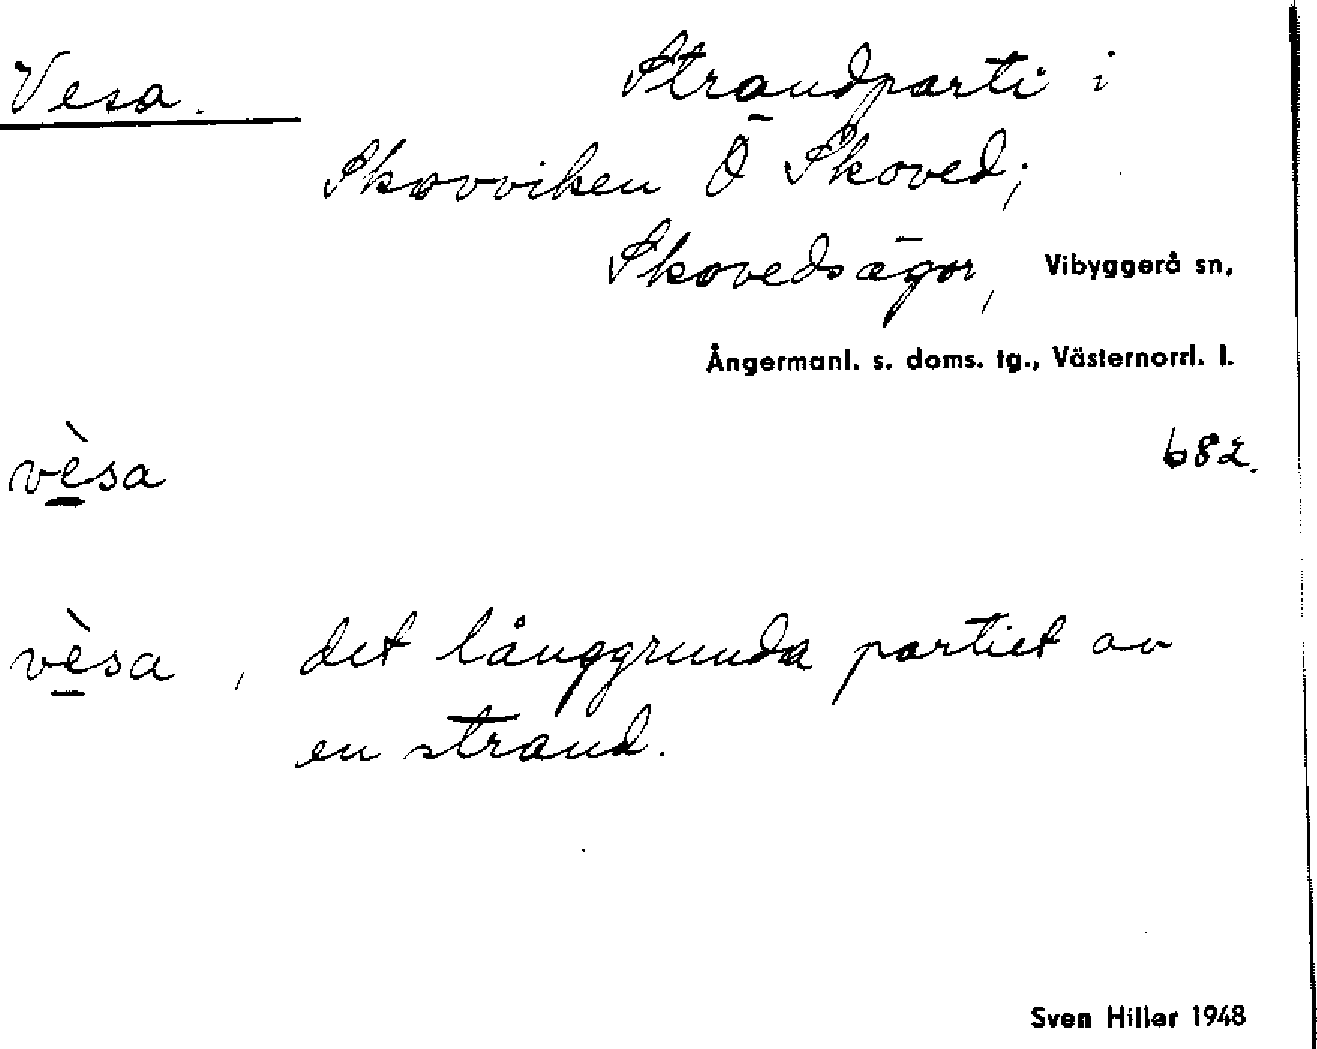 Vesa. Strandparti i
Skovviken Ö Skoved;
Skovedsägor, Vibyggerå sn,
Ångermanl. s. doms. tg., Västernorrl. l.
vèsa 682.
vèsa, det långgrunda partiet av
en strand.
Sven Hiller 1948